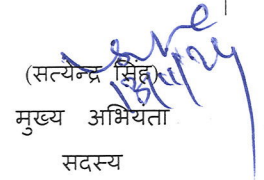 (सत्येन्द्र सिंह)
मुख्य अभियंता
सदस्य